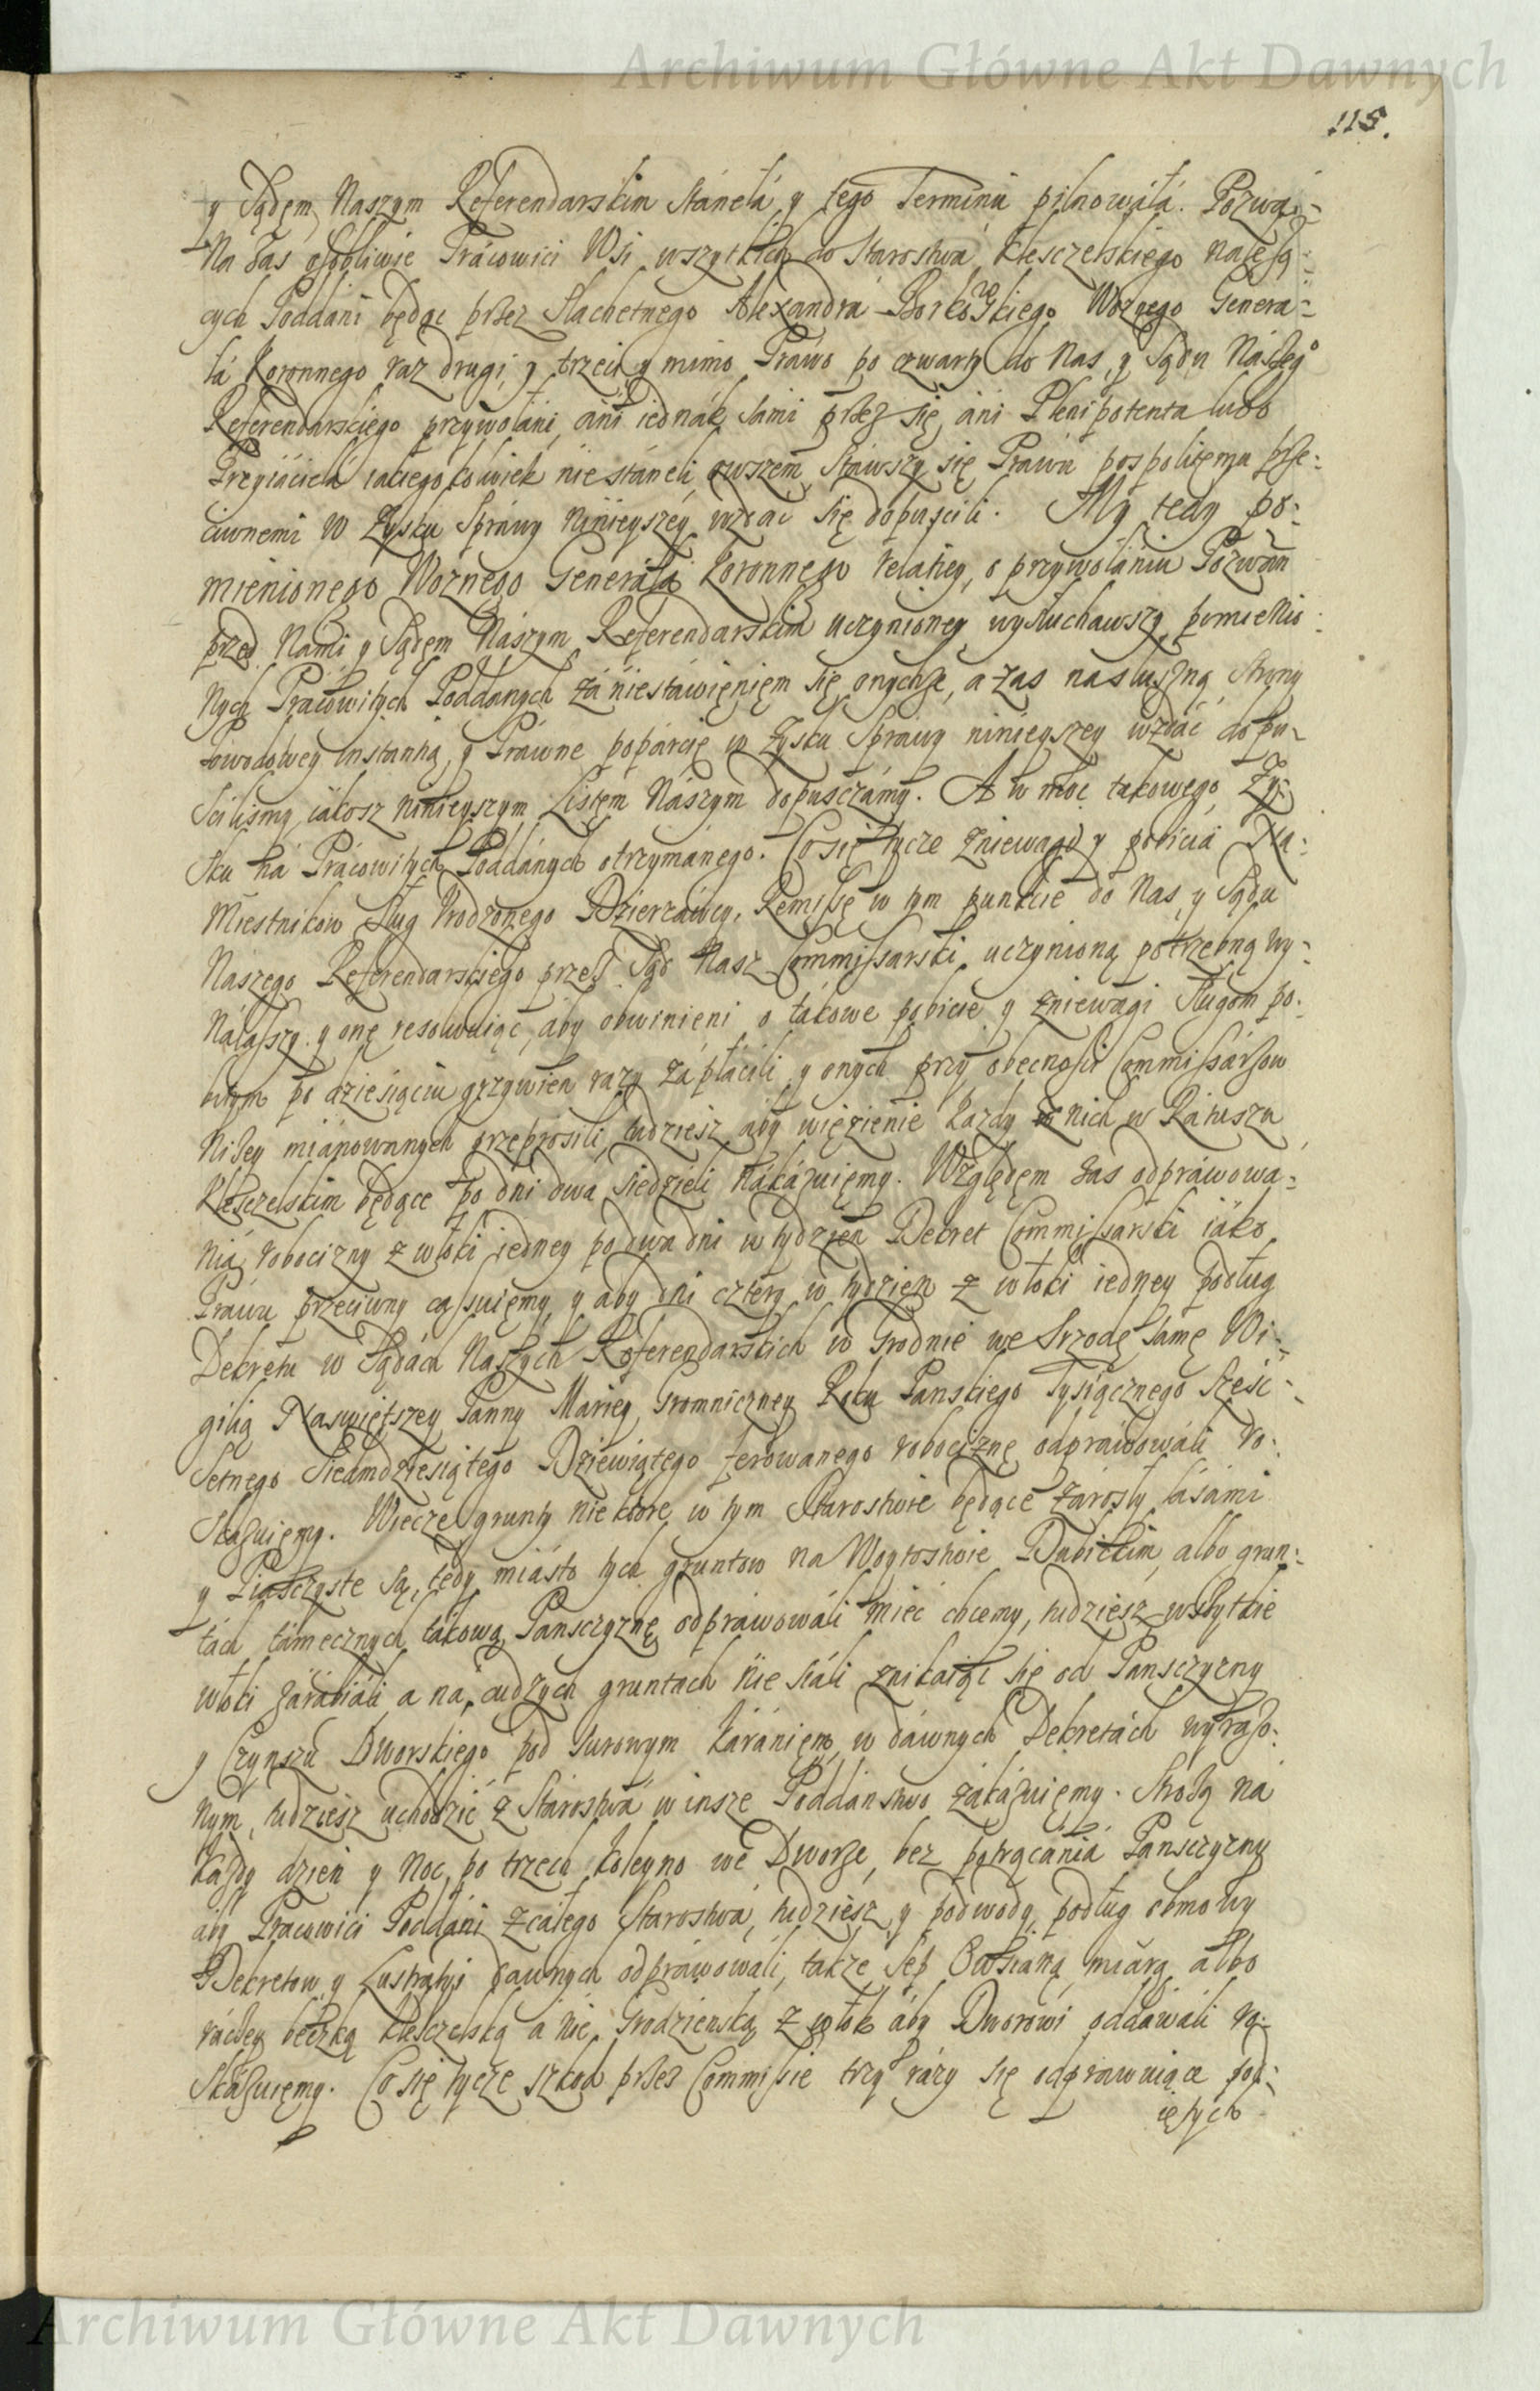 Archiwum Główne Akt Dawnych
115.
y Sądem Naszym Referendarskim stáneła, y tego Terminu pilnowáłá. Pozwa-
ná zas osobliwie Prácowici Wsi wszytkich do Starostwá Klesczelskiego należą-
cych Poddáni będąc przez Slachetnego Alexandrá Borkowskiego Woznego Generá-
łá Koronnego raz drugi, y trzeci y mimo Práwo po czwarty do Nas, y Sądu Nászego
Referendarskiego przywołáni, áni iednák sámi przez się, áni Plenipotenta lubo
Przyiacielá iakiegokolwiek nie stáneli, owszem stáwszy się Práwu pospolitemu prze-
ciwnemi w Zysku Spráwy ninieyszey wzdác się dopuscili. My tedy po-
mienionego Woznego Generáłá Koronnego relátiey, o przywołániu Pozwán
przed Nami y Sądem Nászym Referendarskim uczynioney wysłuchawszy, pomienio-
nych Prácowitych Poddánych zá niestáwieniem się onychże, a zás nasłuszną Strony
Powodowey instántią, y Práwne popárcie w Zysku Spráwy ninieyszey wzdác dopu-
scilismy, iákosz ninieyszym Listem Nászym dopusczámy. A w moc takowego Zy-
sku ná Prácowitych Poddánych otrzymánego. Co się tycze zniewagi y pobiciá Na-
miestnikow Sług Urodzonego Dzierzáwcy, Remissę w tym punkcie do Nas, y Sądu
Naszego Referendarskiego przez Sąd Nasz Commissarski uczynioną potrzebną wy-
nálaszszy y onę resolwuiąc, áby obwinieni o tákowe pobicie y zniewagi Sługom po-
bitym po dziesiąciu grzywien rázy zápłácili y onych przy obecnosci Commissárzow
niżey miánowanych przeprosili, tudziesz áby więzienie każdy z nich w Rátuszu
Klesczelskim będące po dni dwá siedzieli nákázuiemy. Względem zas odpráwowa-
niá robocizny z włoki iedney po dwa dni w tydzien Dekret Commissarski iáko
Práwu przeciwny cassuiemy, y aby dni cztery w tydzien z włoki iedney podług
Dekretu w Sądách Nászych Referendarskich w Grodnie we Srzodę sámę Wi-
gilią Naswiętszey Panny Mariey Gromniczney Roku Panskiego Tysiącznego Szesc-
setnego Siedmdziesiątego Dziewiątego ferowanego robociznę odpráwowáli ro-
skázuiemy. Wiecze grunty niektore w tym Starostwie będące zárosły lásami
y Piasczyste są, tedy miásto tych gruntow na Woytostwie Dubickim, albo grun-
tách támecznych tákową Pansczyznę odpráwowáli mieć chcemy, tudziesz wszytkie
włoki zárábiáli, a ná cudzych gruntách nie siáli, znikáiąc się od Pansczyzny
y Czynszu Dworskiego pod surowym káraniem, w dáwnych Dekretách wyrázo-
nym, tudziesz uchodzić z Stárostwá w insze Poddánstwo zákázuiemy. Strożą ná
każdy dzien y noc po trzech koleyno we Dworze, bez potrącániá Pansczyzny
áby Prácowici Poddáni z cáłego Starostwá, tudziesz y podwody, podług obmowy
Dekretow y Lustrátyi dawnych odpráwowáli, także sep Owsiáną miárą albo
ráczey beczką Klesczelską á nie Grodzienską z włok áby Dworowi oddáwáli ro-
skázuiemy. Co się tycze szkod przez Commissie trzy rázy się odpráwuiące pod-
iętych
Archiwum Główne Akt Dawnych